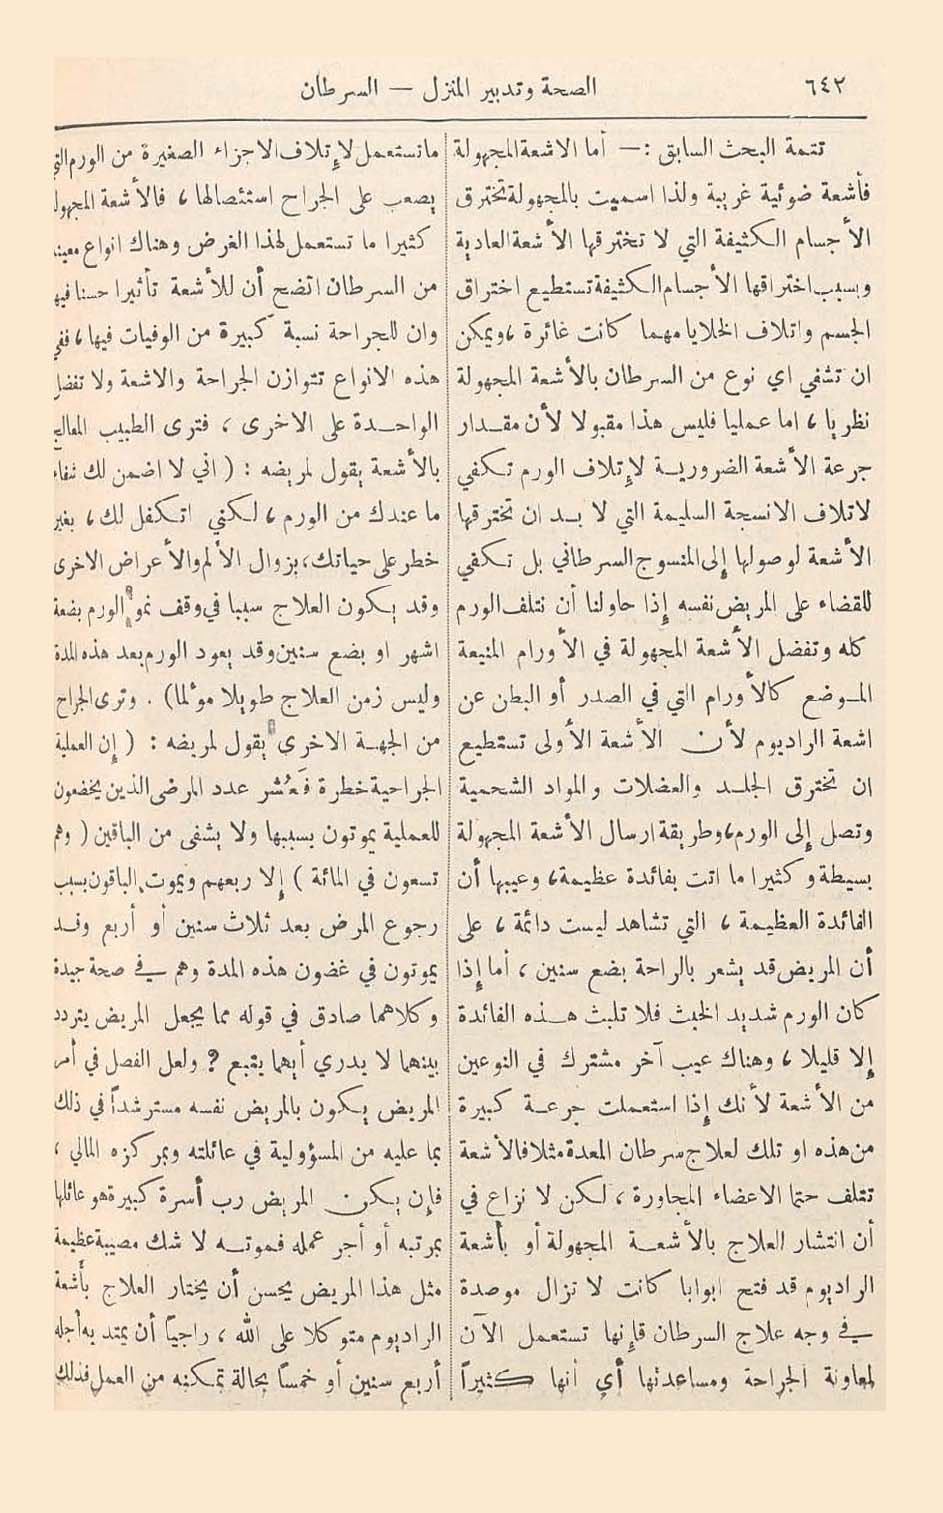 ٦٤٢
الصحة وتدبير المنزل — السرطان
تتمة البحث السابق :— أما الاشعة المجهولة
فأشعة ضوئية غريبة ولذا اسميت بالمجهولة تخترق
الأجسام الكثيفة التي لا تخترقها الأشعة العادية
وبسبب اختراقها الأجسام الكثيفة تستطيع اختراق
الجسم واتلاف الخلايا مهما كانت غائرة ، ويمكن
ان تشفي اي نوع من السرطان بالأشعة المجهولة
نظريا ، اما عمليا فليس هذا مقبولا لأن مقدار
جرعة الأشعة الضرورية لإتلاف الورم تكفي
لاتلاف الانسجة السليمة التي لا بد ان تخترقها
الأشعة لوصولها إلى المنسوج السرطاني بل تكفي
للقضاء على المريض نفسه إذا حاولنا أن نتلف الورم
كله وتفضل الأشعة المجهولة في الأورام المنيعة
الموضع كالأورام التي في الصدر أو البطن عن
اشعة الراديوم لأن الأشعة الأولى تستطيع
ان تخترق الجلد والعضلات والمواد الشحمية
وتصل إلى الورم ، وطريقة ارسال الأشعة المجهولة
بسيطة وكثيرا ما اتت بفائدة عظيمة ، وعيبها أن
الفائدة العظيمة ، التي تشاهد ليست دائمة ، على
أن المريض قد يشعر بالراحة بضع سنين ، أما إذا
كان الورم شديد الخبث فلا تلبث هذه الفائدة
إلا قليلا ، وهناك عيب آخر مشترك في النوعين
من الأشعة لأنك إذا استعملت جرعة كبيرة
من هذه او تلك لعلاج سرطان المعدة مثلا فالأشعة
تتلف حتما الاعضاء المجاورة ، لكن لا نزاع في
أن انتشار العلاج بالأشعة المجهولة أو بأشعة
الراديوم قد فتح ابوابا كانت لا تزال موصدة
في وجه علاج السرطان فإنها تستعمل الآن
لمعاونة الجراحة ومساعدتها أي أنها كثيراً
ما تستعمل لإتلاف الاجزاء الصغيرة من الورم التي
يصعب على الجراح استئصالها ، فالأشعة
كثيرا ما تستعمل لهذا الغرض وهناك انواع معينة
من السرطان اتضح أن للأشعة تأثيرا حسنا فيها
وان للجراحة نسبة كبيرة من الوفيات فيها ، ففي
هذه الانواع تتوازن الجراحة والاشعة ولا تفضل
الواحدة على الاخرى ، فترى الطبيب المعالج
بالأشعة يقول لمريضه : ( اني لا اضمن لك شفاء
ما عندك من الورم ، لكنني اتكفل لك ، بغير
خطر على حياتك ، بزوال الألم والأعراض الاخرى
وقد يكون العلاج سببا في وقف نمو الورم بضعة
اشهر او بضع سنين وقد يعود الورم بعد هذه المدة
وليس زمن العلاج طويلا مؤلما) . وترى الجراح
من الجهة الاخرى يقول لمريضه : ( إن العملية
الجراحية خطرة فَعُشر عدد المرضى الذين يخضعون
للعملية يموتون بسببها ولا يشفى من الباقين ( وهم
تسعون في المائة ) إلا ربعهم ويموت الباقون بسبب
رجوع المرض بعد ثلاث سنين أو أربع وقد
يموتون في غضون هذه المدة وهم في صحة جيدة
وكلاهما صادق في قوله مما يجعل المريض يتردد
بينهما لا يدري أيهما يتبع ? ولعل الفصل في أمر
المريض يكون بالمريض نفسه مسترشداً في ذلك
بما عليه من المسؤولية في عائلته وبمركزه المالي ،
فإن يكن المريض رب أسرة كبيرة هو عائلها
بمرتبه أو أجر عمله فموته لا شك مصيبة عظيمة
مثل هذا المريض يحسن أن يختار العلاج بأشعة
الراديوم متوكلا على الله ، راجياً أن يمتد به أجله
أربع سنين أو خمساً بحالة تمكنه من العمل فذلك